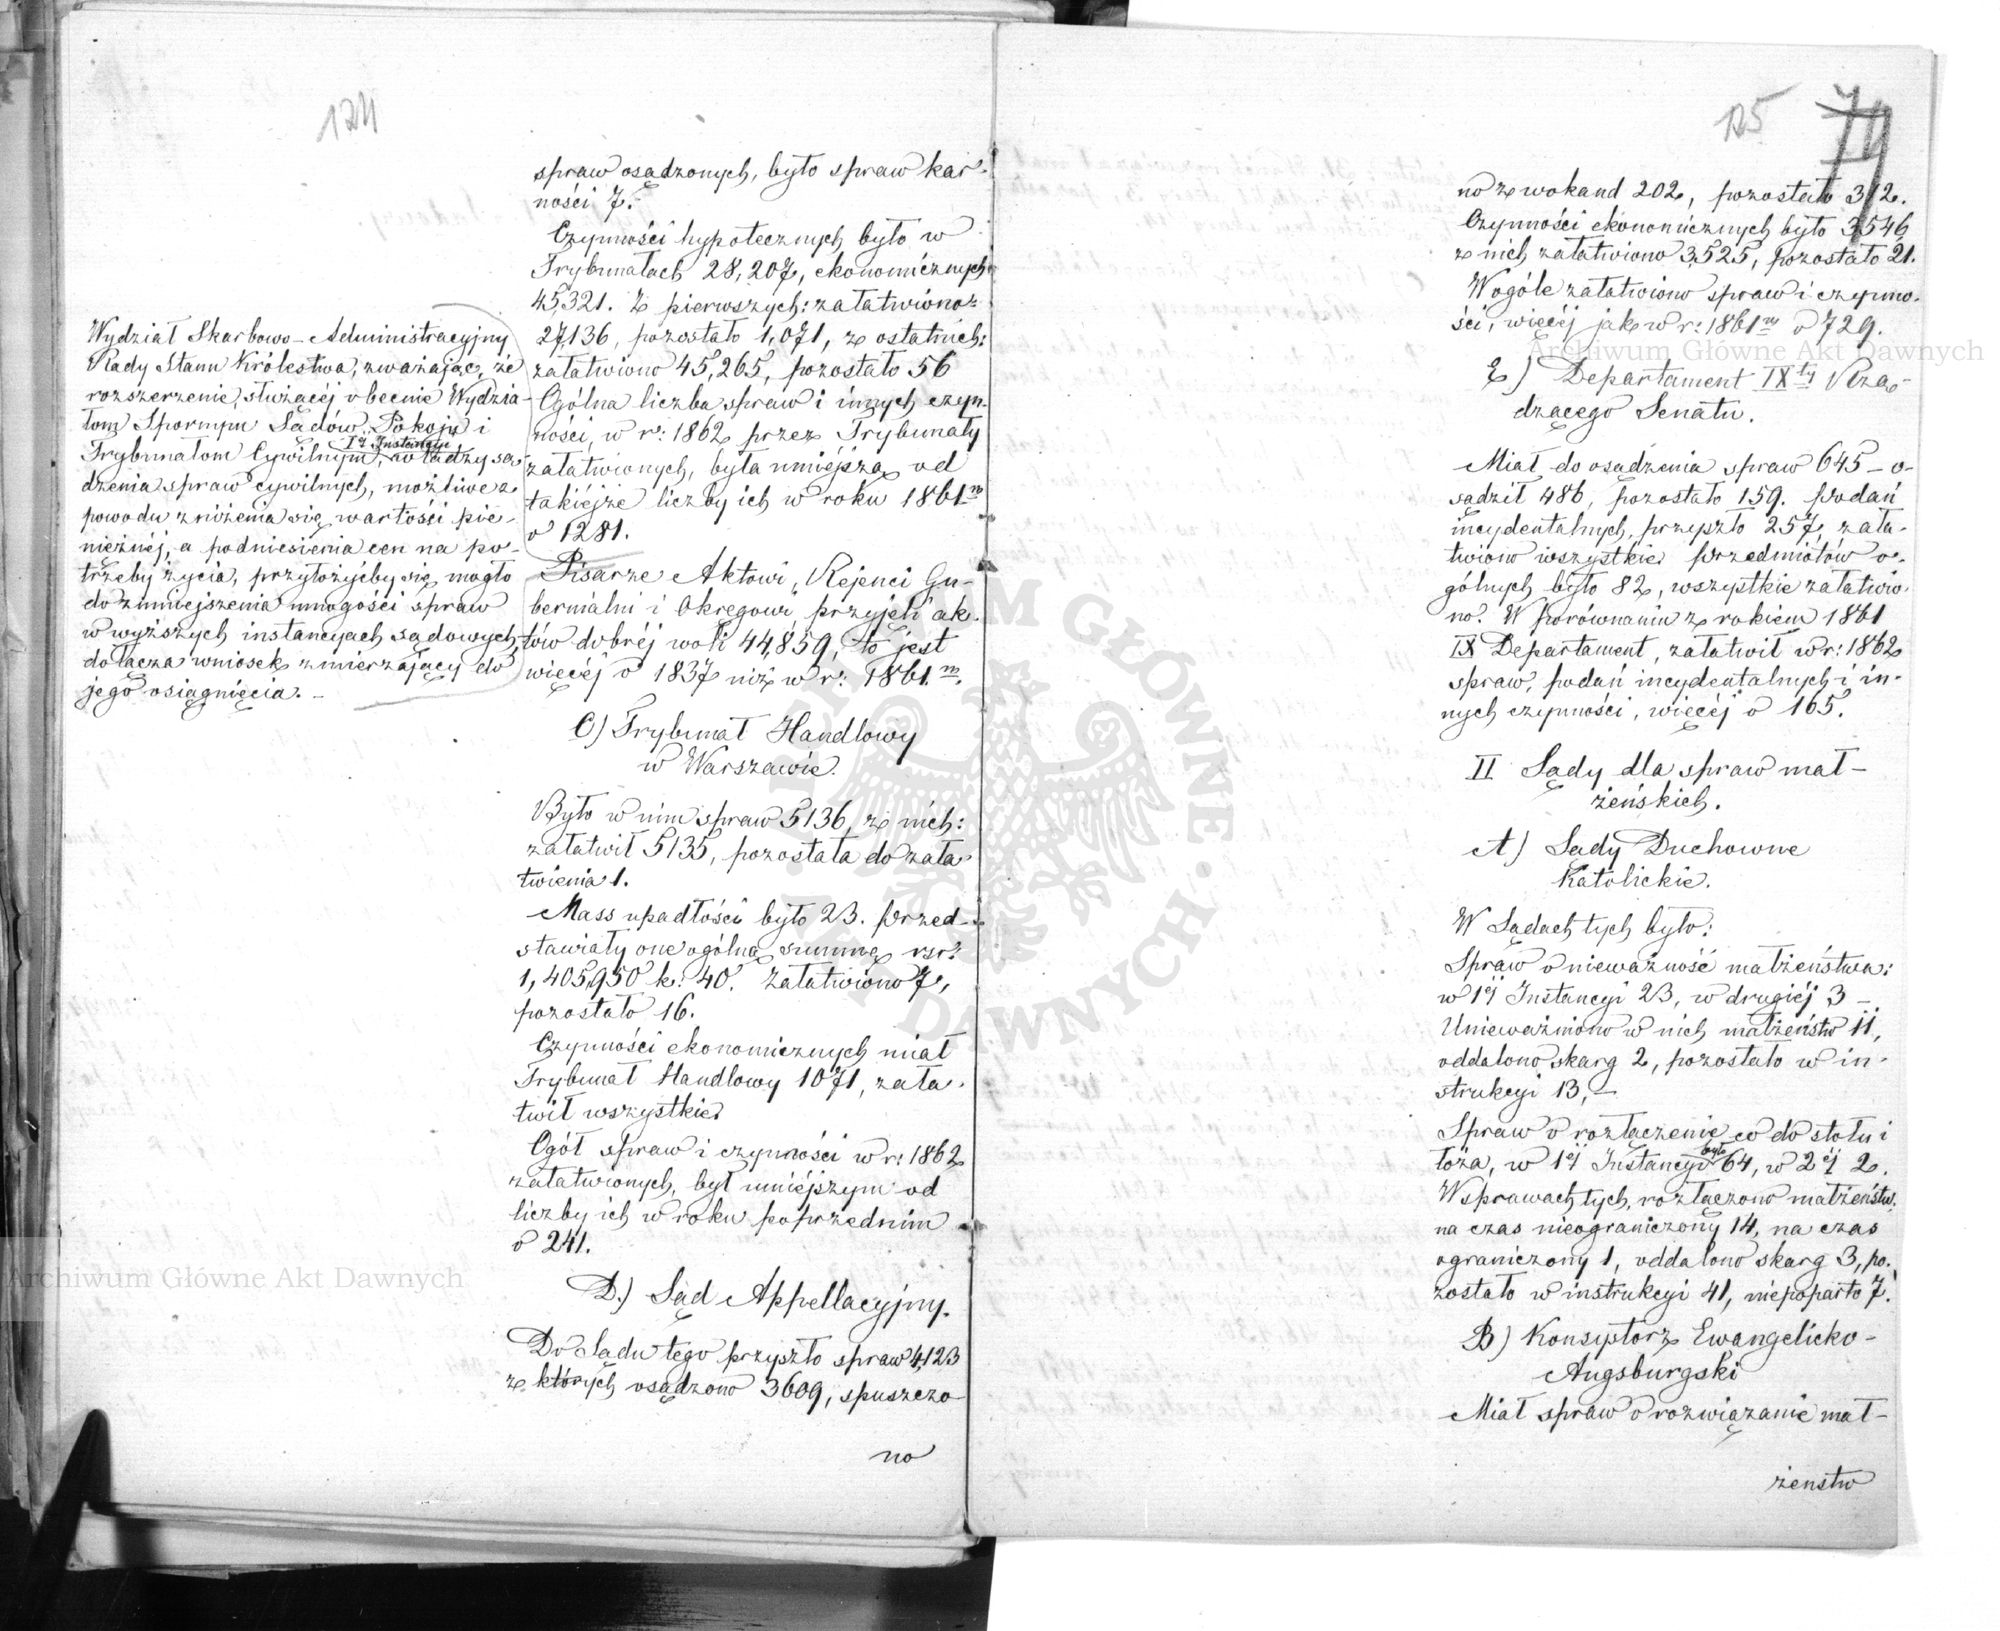 124
spraw osądzonych, było spraw kar-
ności 7.-
Czynności hypotecznych było w
Trybunałach 28,207, ekonomicznych
45,321. Z pierwszych: załatwiono:
27,136, pozostało 1,071, z ostatnich:
załatwiono 45,265, pozostało 56
Ogólna liczba spraw i innych czyn-
ności, w r: 1862 przez Trybunały
załatwionych, była mniejszą od
takiejże liczby ich w roku 1861m
o 1281.
Pisarze Aktowi, Rejenci Gu-
bernialni i Okręgowi przyjęli ak-
tów dobréj woli 44,859, to jest
więcéj o 1837 niż w r: 1861.m.
Wydział Skarbowo-Administracyjny
Rady Stanu Królestwa, zważając, że
rozszerzenie, służącéj obecnie Wydzia-
łom Spornym Sądów Pokoju i
Trybunałom Cywilnym Iéj Instancyi, władzy są-
dzenia spraw cywilnych, możliwe z
powodu zniżenia się wartości pie-
niężnéj, a podniesienia cen na po-
trzeby życia, przyłożyćby się mogło
do zmniejszenia mnogości spraw
w wyższych instancyach sądowych,
dołącza wniosek zmierzający do
jego osiągnięcia. -
C) Trybunał Handlowy
w Warszawie.
Było w nim spraw 5136, z nich:
załatwił 5135, pozostała do zała-
twienia 1.
Mass upadłości było 23. Przed-
stawiały one ogólną summę rsr:
1,405,950 k: 40. załatwiono 7,
pozostało 16.
Czynności ekonomicznych miał
Trybunał Handlowy 1071, zała-
twił wszystkie.
Ogół spraw i czynności w r: 1862
załatwionych, był mniejszym od
liczby ich w roku poprzednim
o 241.
D.) Sąd Appellacyjny.
Do Sądu tego przyszło spraw 4,123
z których osądzono 3609, spuszczo
no
125
79
no z wokand 202, pozostało 312.
Czynności ekonomicznych było 3,546
z nich załatwiono 3,525, pozostało 21.
Wogóle załatwiono spraw i czynno-
ści, więcéj jak w r: 1861m o 729.
E) Departament IXty Rzą-
dzącego Senatu.
Miał do osądzenia spraw 645 - o-
sądził 486, pozostało 159. Podań
incydentalnych, przyszło 257, zała-
twiono wszystkie. Przedmiotów o-
gólnych było 82, wszystkie załatwio-
no. W porównaniu z rokiem 1861
IX Departament, załatwił w r: 1862
spraw, podań incydentalnych i in-
nych czynności, więcéj o 165.
II Sądy dla spraw mał-
żeńskich.
A) Sądy Duchowne
Katolickie.
W Sądach tych było:
Spraw o nieważność małżeństwa:
w 1éj Instancyi 23, w drugiéj 3 -
Unieważniono w nich małżeństw 11,
oddalono skarg 2, pozostało w in-
strukcyi 13, -
Spraw o rozłączenie co do stołu i
łoża, w 1éj Instancyi było 64, w 2éj 2.
W sprawach tych, rozłączono małżeństw.
na czas nieograniczony 14, na czas
ograniczony 1, oddalono skarg 3, po-
zostało w instrukcyi 41, niepoparto 7.
B) Konsystorz Ewangelicko-
Augsburgski
Miał spraw o rozwiązanie mał-
żeństw
Archiwum Główne Akt Dawnych
Archiwum Główne Akt Dawnych
ARCHIWUM GŁÓWNE AKT DAWNYCH